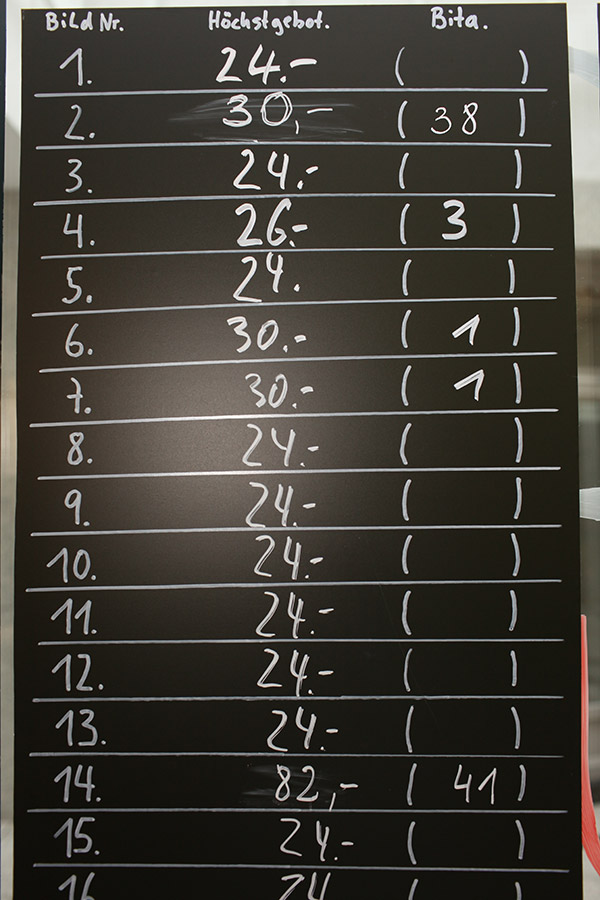 Bild Nr. Höchstgebot. Bita.
1. 24.- ( )
2. 30,- ( 38 )
3. 24.- ( )
4. 26.- ( 3 )
5. 24. ( )
6. 30.- ( 1 )
7. 30.- ( 1 )
8. 24.- ( )
9. 24.- ( )
10. 24.- ( )
11. 24.- ( )
12. 24.- ( )
13. 24.- ( )
14. 82,- ( 41 )
15. 24.- ( )
16 24 ( )